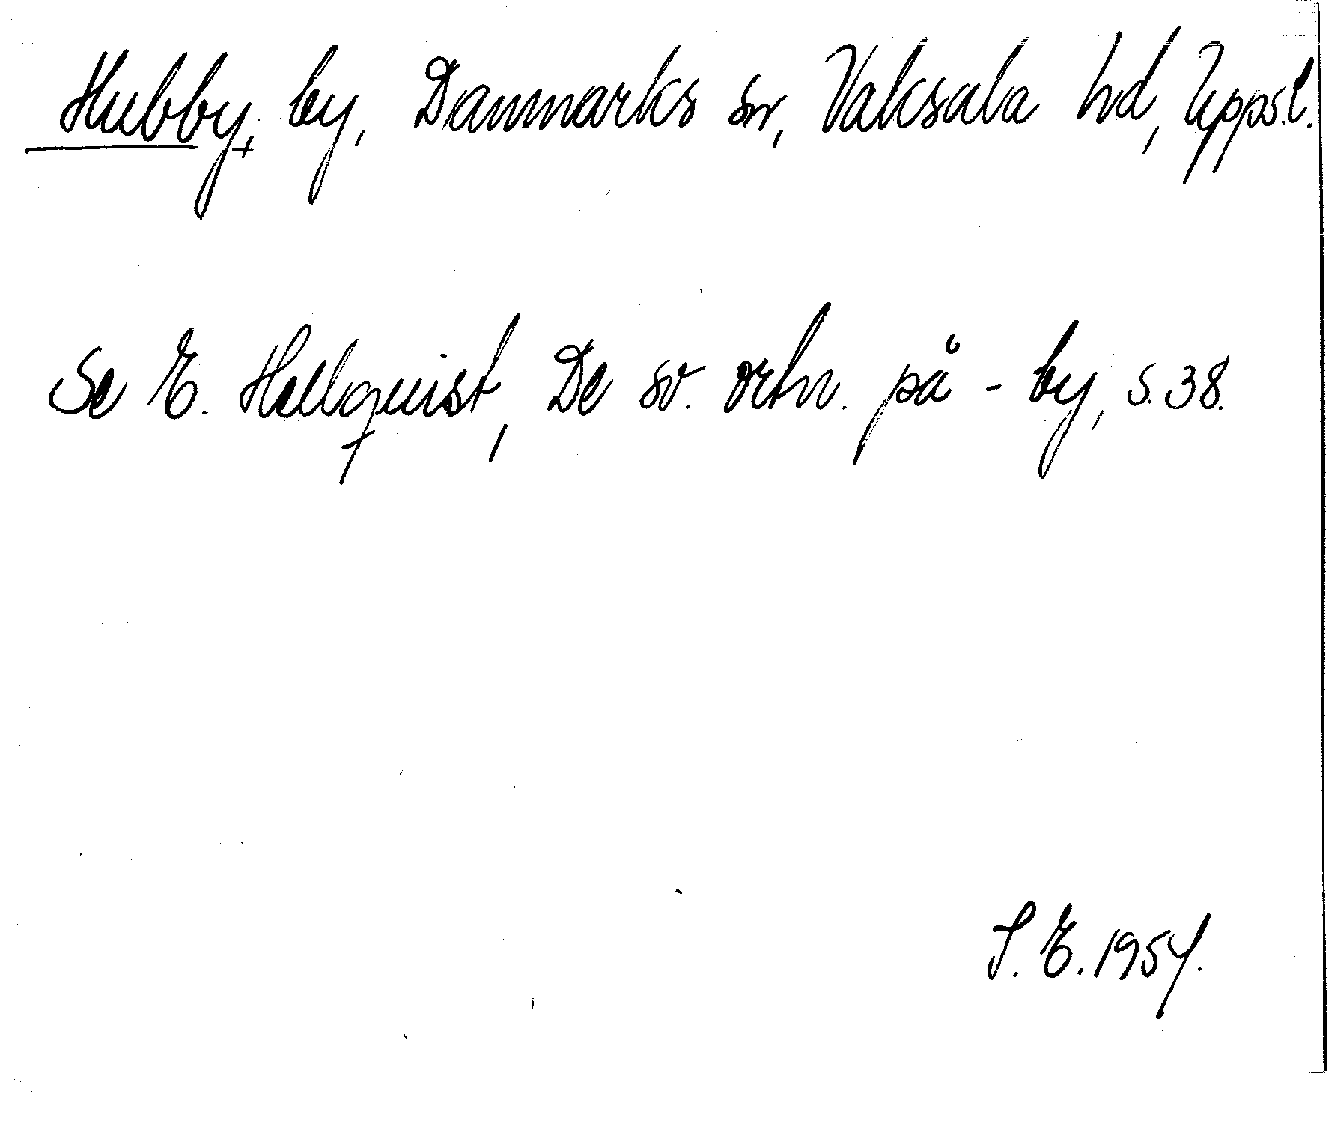 Hubby, by, Danmarks sn, Vaksala hd, Uppsl.
Se E. Hellquist, De sv. ortn. på - by, s. 38.
S. E. 1954.